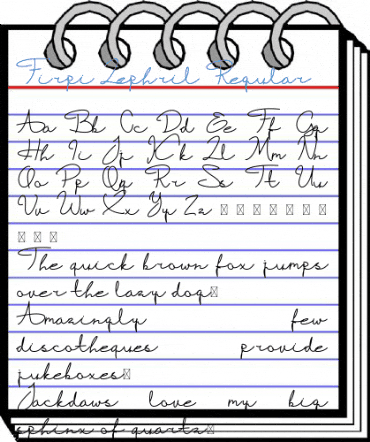 Firpi Zephril Regular
Aa Bb Cc Dd Ee Ff Gg
Hh Ii Jj Kk Ll Mm Nn
Oo Pp Qq Rr Ss Tt Uu
Vv Ww Xx Yy Zz
The quick brown fox jumps
over the lazy dog
Amazingly few
discotheques provide
jukeboxes
Jackdaws love my big
sphinx of quartz